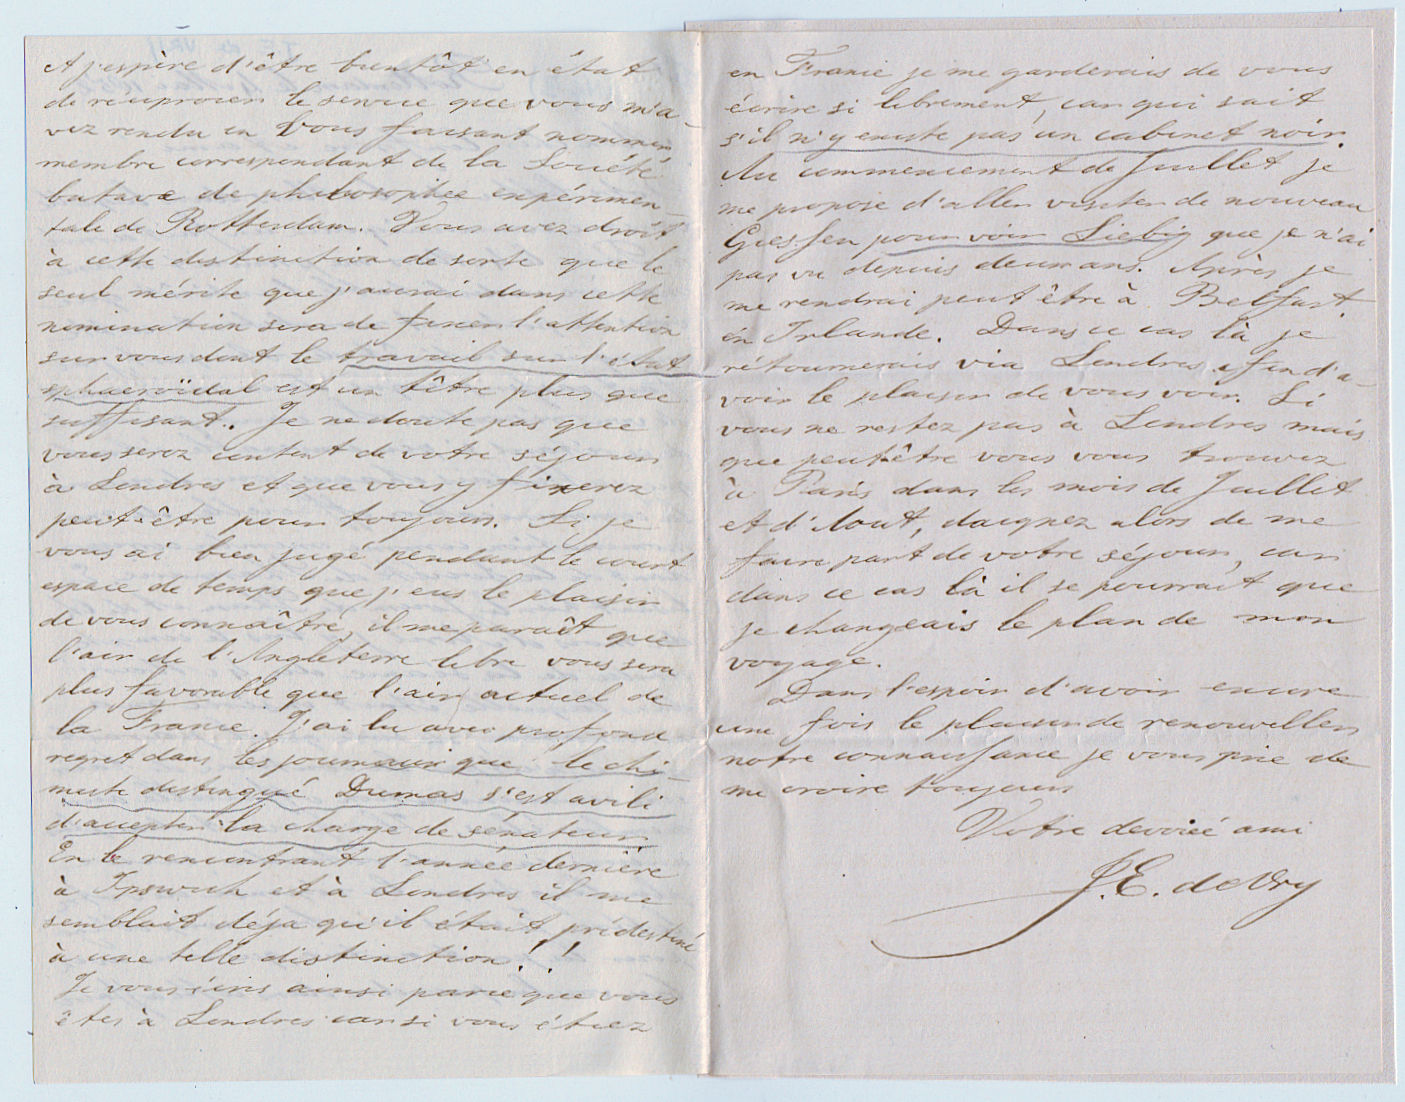 et j'espère d'être bientôt en état
de reciprocer le service que vous m'a-
vez rendu en vous faisant nommer
membre correspondant de la Société
batave de philosophie expérimen-
tale de Rotterdam. Vous avez droit
à cette distinction de sorte que le
seul mérite que j'aurai dans cette
nomination sera de fixer l'attention
sur vous dont le travail sur l'état
sphaeroïdal est un titre plus que
suffisant. Je ne doute pas que
vous serez content de votre séjour
à Londres et que vous y fixerez
peut-être pour toujours. Si je
vous ai bien jugé pendant le court
espace de temps que j'eus le plaisir
de vous connaître il me paraît que
l'air de l'Angleterre libre vous sera
plus favorable que l'air actuel de
la France. J'ai lu avec profond
regret dans les journaux que le chi-
miste distingué Dumas s'est avili
d'accepter la charge de sénateur
En le rencontrant l'année dernière
à Ipswich et à Londres il me
semblait déja qu'il était prédestiné
à une telle distinction!!
Je vous écris ainsi parce que vous
êtes à Londres car si vous étiez
en France je me garderais de vous
écrire si librement, car qui sait
s'il n'y existe pas un cabinet noir.
Au commencement de Juillet je
me propose d'aller visiter de nouveau
Giessen pour voir Liebig que je n'ai
pas vu depuis deux ans. Après je
me rendrai peut être à Belfast
en Irlande. Dans ce cas là je
rétournerais via Londres afin d'a-
voir le plaisir de vous voir. Si
vous ne restez pas à Londres mais
que peutêtre vous vous trouvez
à Paris dans les mois de Juillet
et d'Aout, daignez alors de me
faire part de votre séjour, car
dans ce cas là il se pourrait que
je changeais le plan de mon
voyage.
Dans l'espoir d'avoir encore
une fois le plaisir de renouveller
notre connaissance je vous prie de
me croire toujours
Votre dévoué ami
J.E. de Vry